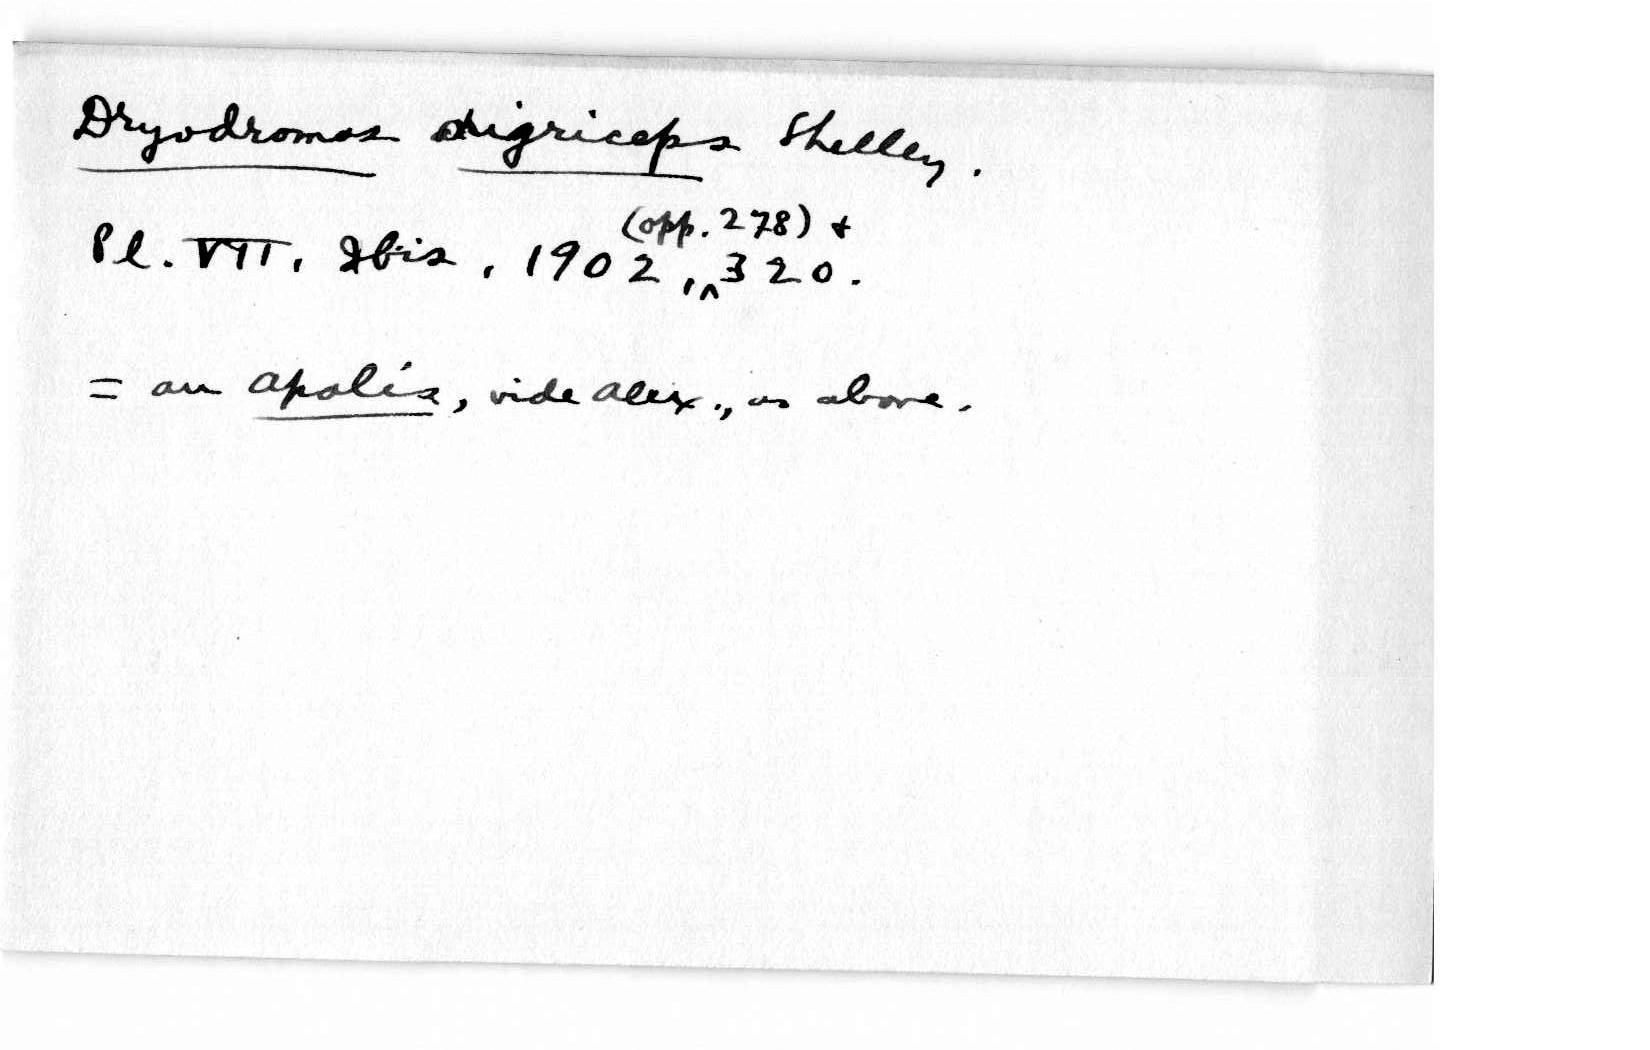 Dryodromas nigriceps Shelley.
Pl. VII, Ibis, 1902, (opp. 278) & 320.
= an Apalis, vide Alex., as above.